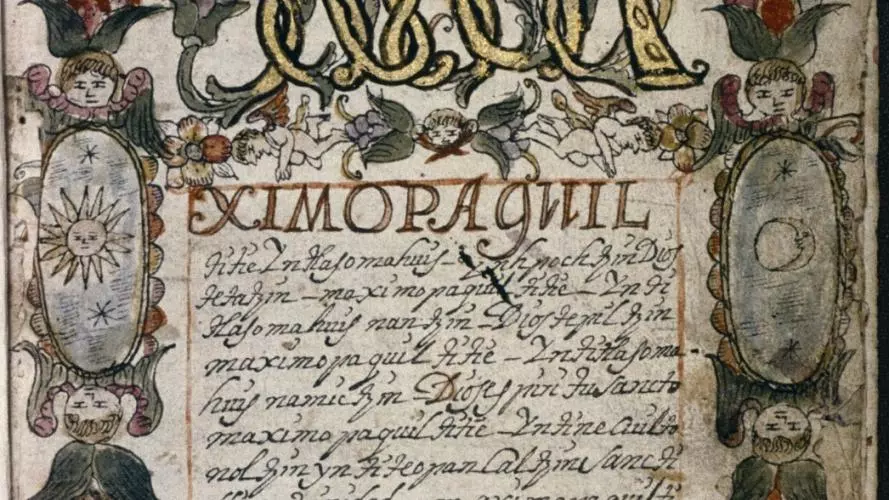 XIMOPAQUIL
titie Yn tlasomahuis ychpochtzin Dios
tetatzin – maximopaquiltitie – Yn ti
tlasomahuis nantzin – Dios tepiltzin
maximopaquiltitie – Yn titlasoma
huis namictzin – Dios espiritu sancto
maximopaquiltitie – Yn tine cuilto
noltzin yn titeopancaltzin e sancti